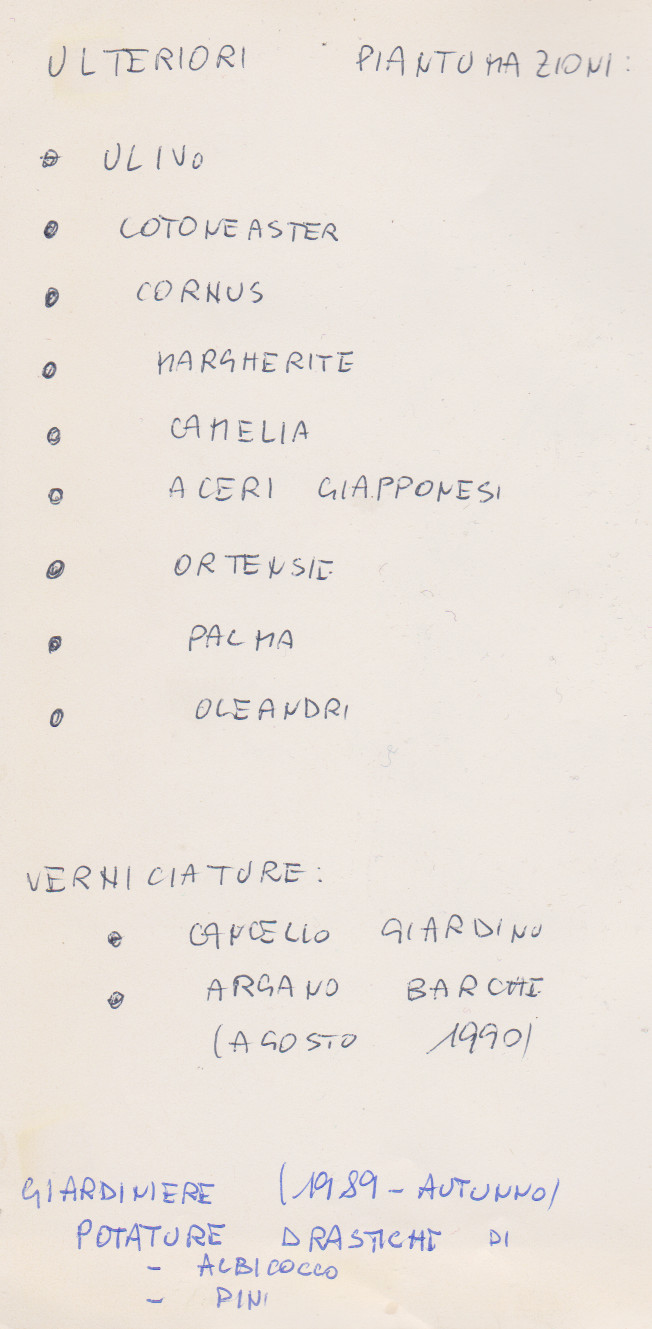 ULTERIORI PIANTUMAZIONI:
ULIVO
COTONEASTER
CORNUS
MARGHERITE
CAMELIA
ACERI GIAPPONESI
ORTENSIE
PALMA
OLEANDRI
VERNICIATURE:
CANCELLO GIARDINO
ARGANO BARCHE
(AGOSTO 1990)
GIARDINIERE (1989 - AUTUNNO)
POTATURE DRASTICHE DI
- ALBICOCCO
- PINI